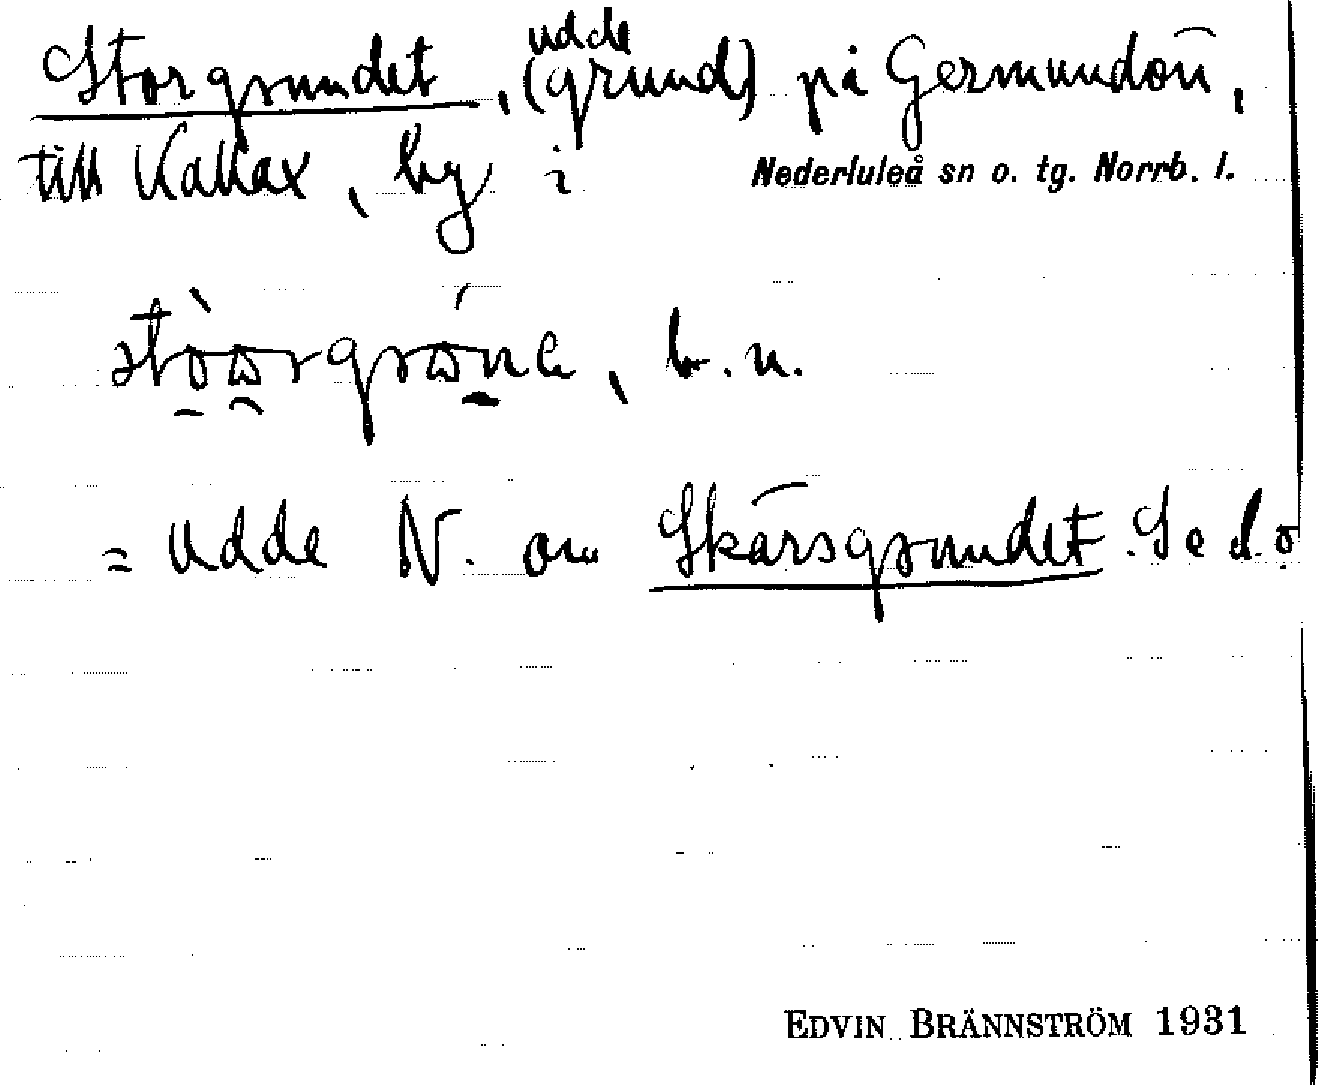 Storgrundet, (grund) udde på Germundön,
till Kallax, by i Nederluleå sn o. tg. Norrb. l.
b. n.
= udde N. om Skärsgrundet. Se d. o
EDVIN BRÄNNSTRÖM 1931